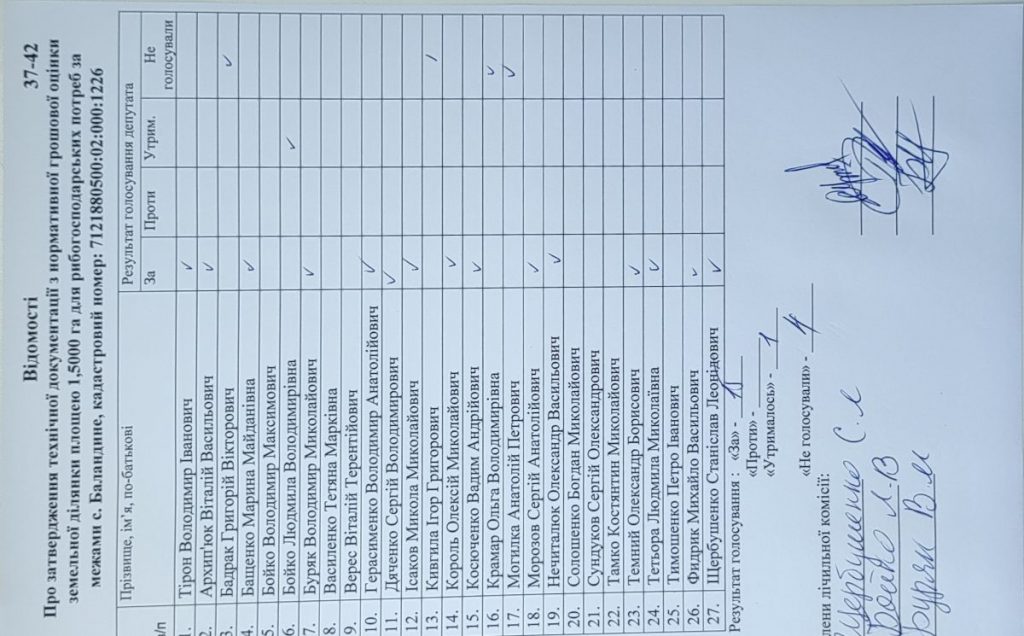 Відомості 37-42
Про затвердження технічної документації з нормативної грошової оцінки
земельної ділянки площею 1,5000 га для рибогосподарських потреб за
межами с. Баландине, кадастровий номер: 7121880500:02:000:1226
п/п Прізвище, ім’я, по-батькові Результат голосування депутата
За Проти Утрим. Не голосували
1. Тірон Володимир Іванович ✓
2. Архип'юк Віталій Васильович ✓
3. Бадрак Григорій Вікторович ✓
4. Бащенко Марина Майданівна ✓
5. Бойко Володимир Максимович
6. Бойко Людмила Володимирівна ✓
7. Буряк Володимир Миколайович ✓
8. Василенко Тетяна Марківна
9. Верес Віталій Терентійович
10. Герасименко Володимир Анатолійович ✓
11. Дяченко Сергій Володимирович ✓
12. Ісаков Микола Миколайович ✓
13. Квитила Ігор Григорович ✓
14. Король Олексій Миколайович ✓
15. Косюченко Вадим Андрійович ✓
16. Крамар Ольга Володимирівна ✓
17. Могилка Анатолій Петрович ✓
18. Морозов Сергій Анатолійович ✓
19. Нечиталюк Олександр Васильович ✓
20. Солошенко Богдан Миколайович
21. Сундуков Сергій Олександрович
22. Тамко Костянтин Миколайович
23. Темний Олександр Борисович ✓
24. Тетьора Людмила Миколаївна ✓
25. Тимошенко Петро Іванович
26. Фидрик Михайло Васильович ✓
27. Щербушенко Станіслав Леонідович ✓
Результат голосування : «За» - 15
«Проти» -
«Утрималось» - 1
«Не голосували» - 4
лени лічильної комісії:
Щербушенко С.Л
Бойко Л.В
Буряк В.М